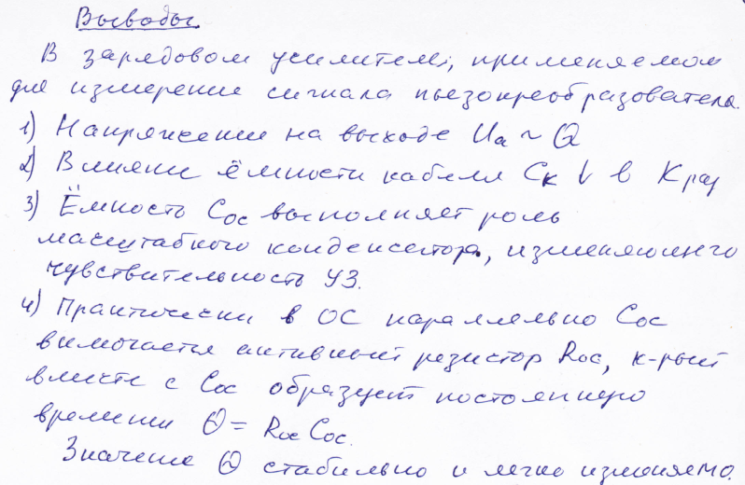 Выводы
В зарядовом усилителе, применяемом
для измерение сигнала пьезопреобразователя.
1) Напряжение на выходе Uа ~ Q
2) Влияние ёмкости кабеля Cк ↓ в K раз
3) Ёмкость Cос выполняет роль
масштабного конденсатора, изменяющего
чувствительность УЗ.
4) Практически в ОС параллельно Cос
включается активный резистор Rос, к-рый
вместе с Cос образует постоянную
времени Θ = Rос Cос.
Значение Θ стабильно и легко изменяемо.